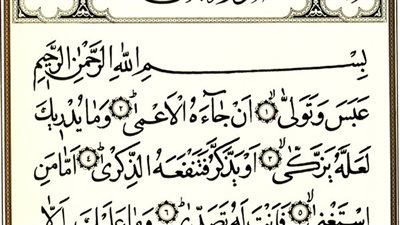 بِسْمِ اللهِ الرَّحْمٰنِ الرَّحِيمِ
عَبَسَ وَتَوَلّٰىۙ ﴿١﴾ اَنْ جَٓاءَهُ الْاَعْمٰىۜ ﴿٢﴾ وَمَا يُدْر۪يكَ
لَعَلَّهُ يَزَّكّٰىۙ ﴿٣﴾ اَوْ يَذَّكَّرُ فَتَنْفَعَهُ الذِّكْرٰىۜ ﴿٤﴾ اَمَّا مَنِ
اسْتَغْنٰىۙ ﴿٥﴾ فَاَنْتَ لَهُ تَصَدّٰىۜ ﴿٦﴾ وَمَا عَلَيْكَ اَلَّا